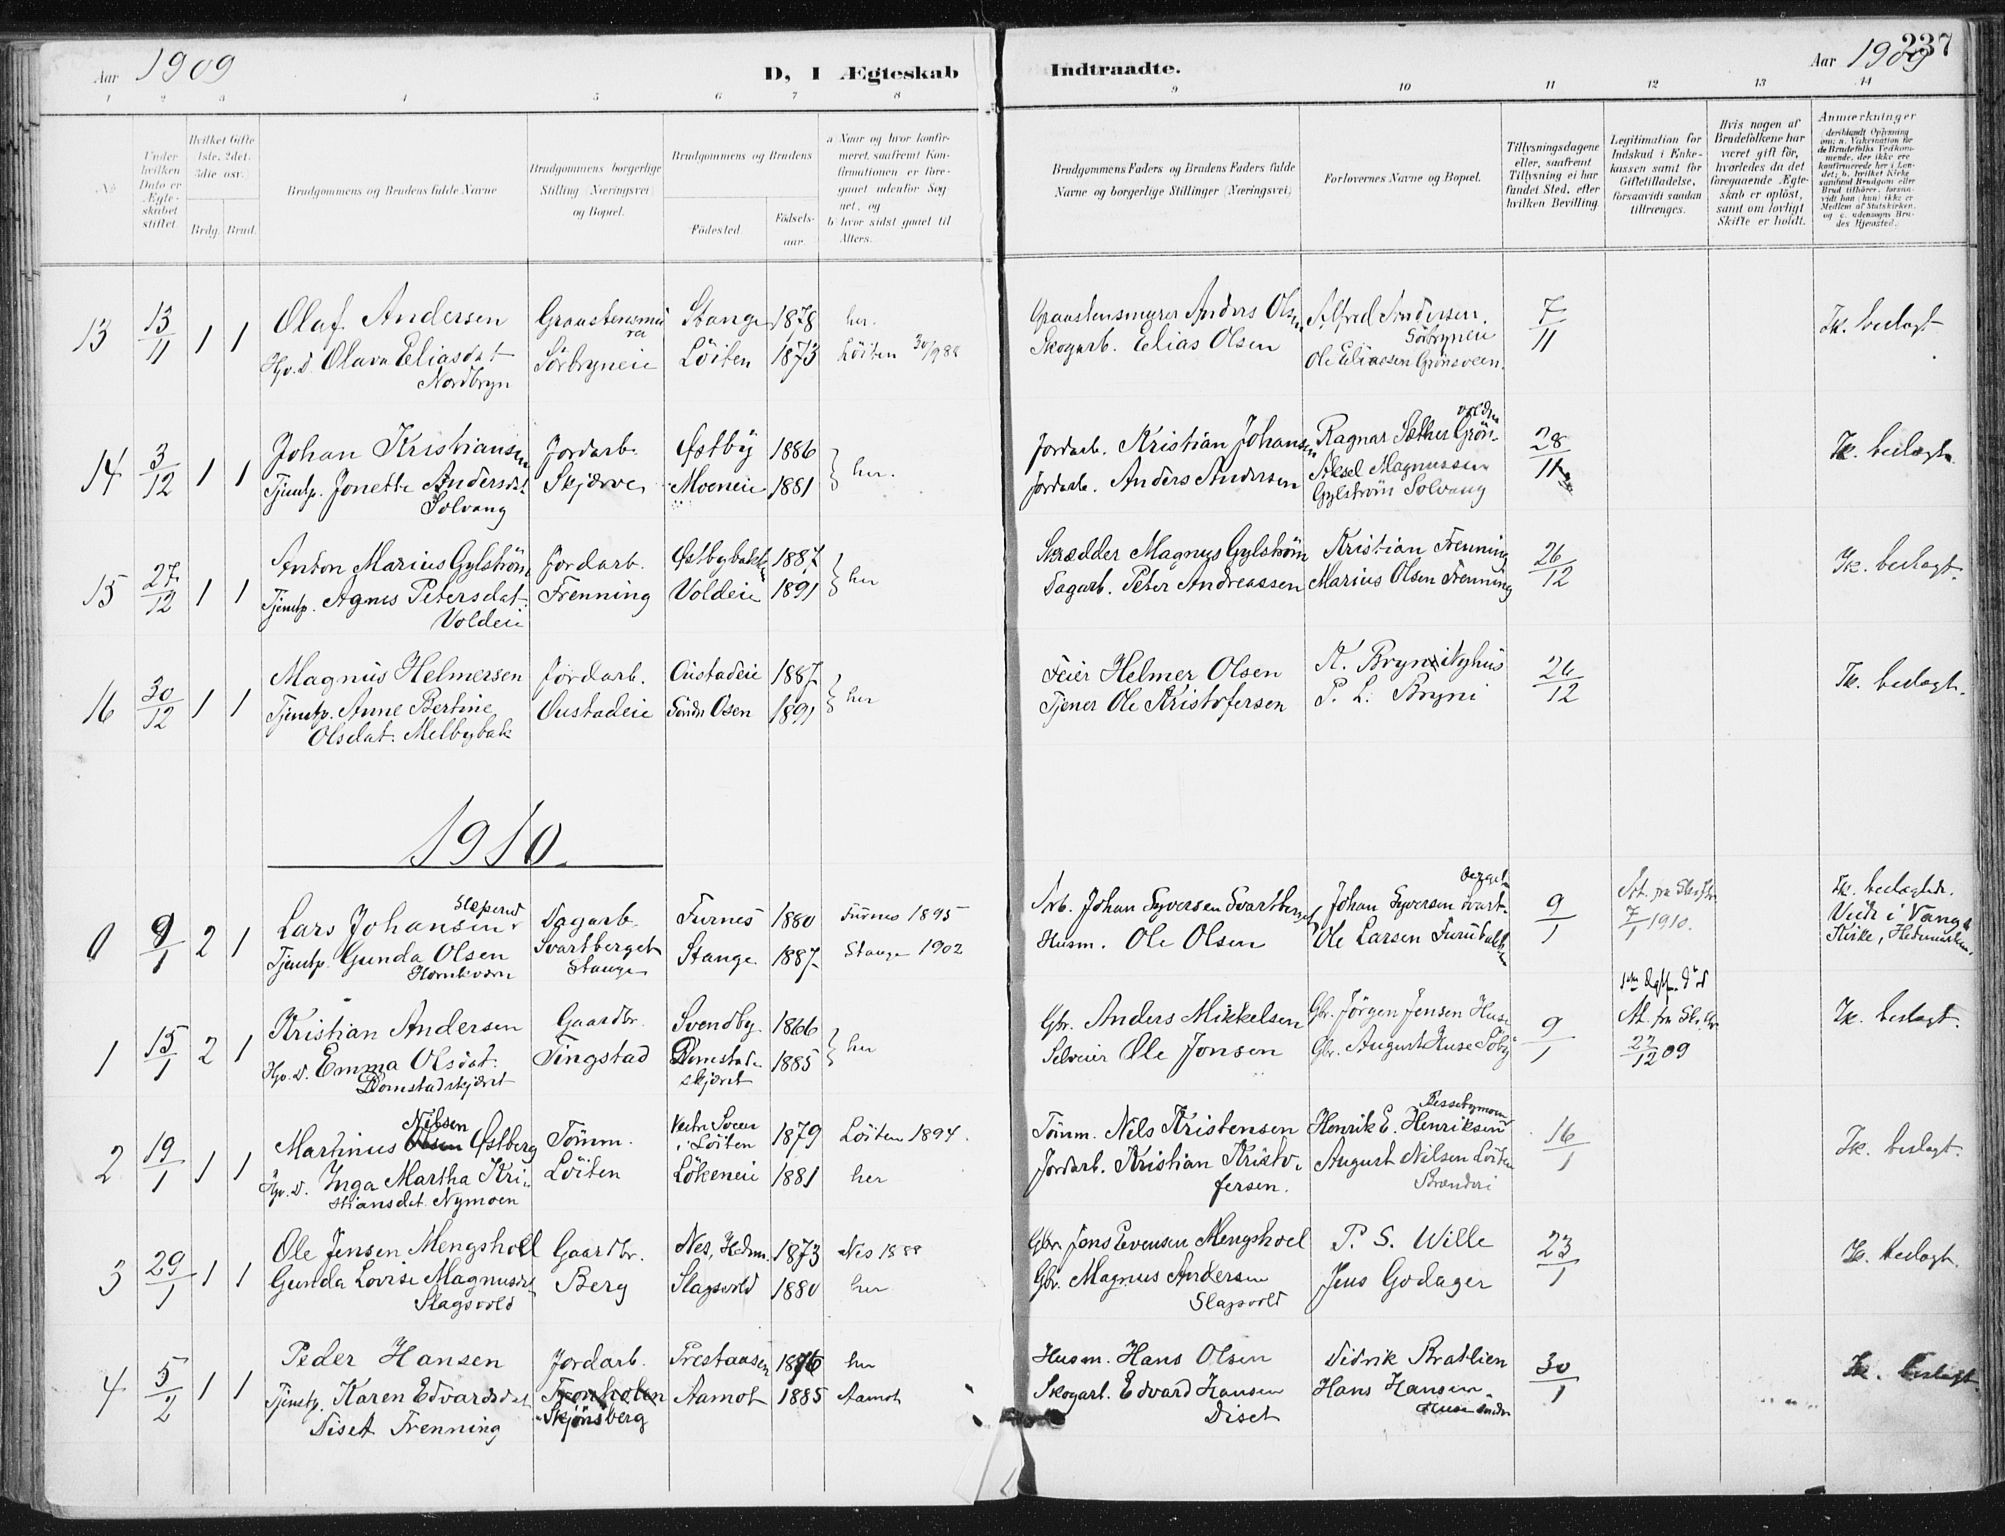 Aar 1909
D, I Ægteskab
Indtraadte.
Aar 1909
237
1 2 3 4 5 6 7 8 9 10 11 12 13 14
No
Under hvilken Dato er Ægteskabet stiftet.
Hvilket Gifte 1ste, 2det, 3die osv.
Brdg. Brud.
Brudgommens og Brudens fulde Navne
Brudgommens borgerlige Stilling (Næringsvei) og Bopæl.
Brudgommens og Brudens
Fødested
Fødselsaar.
a) Naar og hvor konfirmeret, saafremt Konfirmationen er foregaaet udenfor Sognet, og
b) hvor sidst gaaet til Alters.
Brudgommens Faders og Brudens Faders fulde Navne og borgerlige Stillinger (Næringsvei)
Forlovernes Navne og Bopæl.
Tillysningsdagene eller, saafremt Tillysning ei har fundet Sted, efter hvilken Bevilling.
Legitimation for Indskud i Enkekassen samt for Giftetilladelse, forsaavidt saadan tiltrænges.
Hvis nogen af Brudefolkene har været gift før, hvorledes da det foregaaende Ægteskab er opløst, samt om lovligt Skifte er holdt.
Anmærkninger
13 13/11 1 1 Olaf Andersen Graastensmurer Stange 1878 her. Graastensmurer Anders Olsen Alfred Andersen Sörbryneie 7/11 Ik. beslagt
Hjv. D. Olava Eliasdat Nordbryn Sörbryneie Löiten 1873 Löiten 30/9 88 Skogarb. Elias Olsen Ole Eliassen Grönsveen.
14 3/12 1 1 Johan Kristiansen Jordarb. Østby 1886 her. Jordarb. Kristian Johansen Ragnar Sæther Grönvolden 28/11 Ik. beslagt.
Tjenstp. Jonette Andersdat Solvang Skjærve Moeneie 1881 Jordarb. Anders Andersen Aksel Magnussen Gylström Solvang
15 27/12 1 1 Anton Marius Gylström Jordarb. Østbybakke 1887 her Skrædder Magnus Gylström Kristian Frenning 26/12 Ik. beslagt.
Tjenstp. Agnes Petersdat. Voldeie Frenning Voldeie 1891 Sagarb. Peter Andreassen Marius Olsen Frenning
16 30/12 1 1 Magnus Helmersen Jordarb. Oustadeie 1887 her Feier Helmer Olsen K. Bryni Nyhus 26/12 Ik. beslagt.
Tjenstp. Anne Bertine Olsdat. Melbybak Oustadeie Söndr Osen 1891 Tjener Ole Kristofersen P. L. Bryni
1910
0 9/1 2 1 Lars Johansen Sleperud Dagarb. Furnes 1880 Furnes 1895 Arb. Johan Syversen Svartberget Johan Syversen Svartberget 9/1 7/1 1910. Ik. beslagtede. Viede i Vangs Kirke, Hedemarken.
Tjenstp. Gunda Olsen Hornkværn Svartberget Stange Stange 1887 Stange 1902 Husm. Ole Olsen Ole Larsen Furubakken
1 15/1 2 1 Kristian Andersen Gaardbr. Svendby 1866 her Gbr. Anders Mikkelsen Gbr. Jörgen Jensen Huse 9/1 At. fra Skr. 27/12 09 Ik. beslagt.
Hjv. D. Emma Olsdat. Domstadskjæret Tingstad Domstadskjæret 1885 Selveier Ole Jonsen Gbr. August Huse Söby
2 19/1 1 1 Martinus Nilsen Østberg Tömm. Vestre Sveen i Löiten 1879 Löiten 1894. Tömm. Nils Kristensen Henrik E. Henriksen 16/1 Ik. beslagt.
Hjv. D. Inga Martha Kristiansdat. Nymoen Löiten Lökeneie 1881 her Jordarb. Kristian Kristofersen. August Nilsen Löiten Brænderi
3 29/1 1 1 Ole Jensen Mengshoel Gaardbr. Nes, Hedm. 1873 Nes 1888 Gbr. Jens Evensen Mengshoel P. S. Wille 23/1 Ik. beslagt.
Gunda Lovise Magnusdat Slagsvold Berg Slagsvold 1880 her Gbr. Magnus Andersen Slagsvold Jens Godager
4 5/2 1 1 Peder Hansen Jordarb. Prestaasen 1876 her Husm. Hans Olsen Didrik Bratlien 30/1 Ik. beslagt.
Tjenstp. Karen Edvardsdat Diset Frenning Tjønholen Skjönsberg Aamot 1885 Aamot Skogarb. Edvard Hansen Diset Hans Hansen